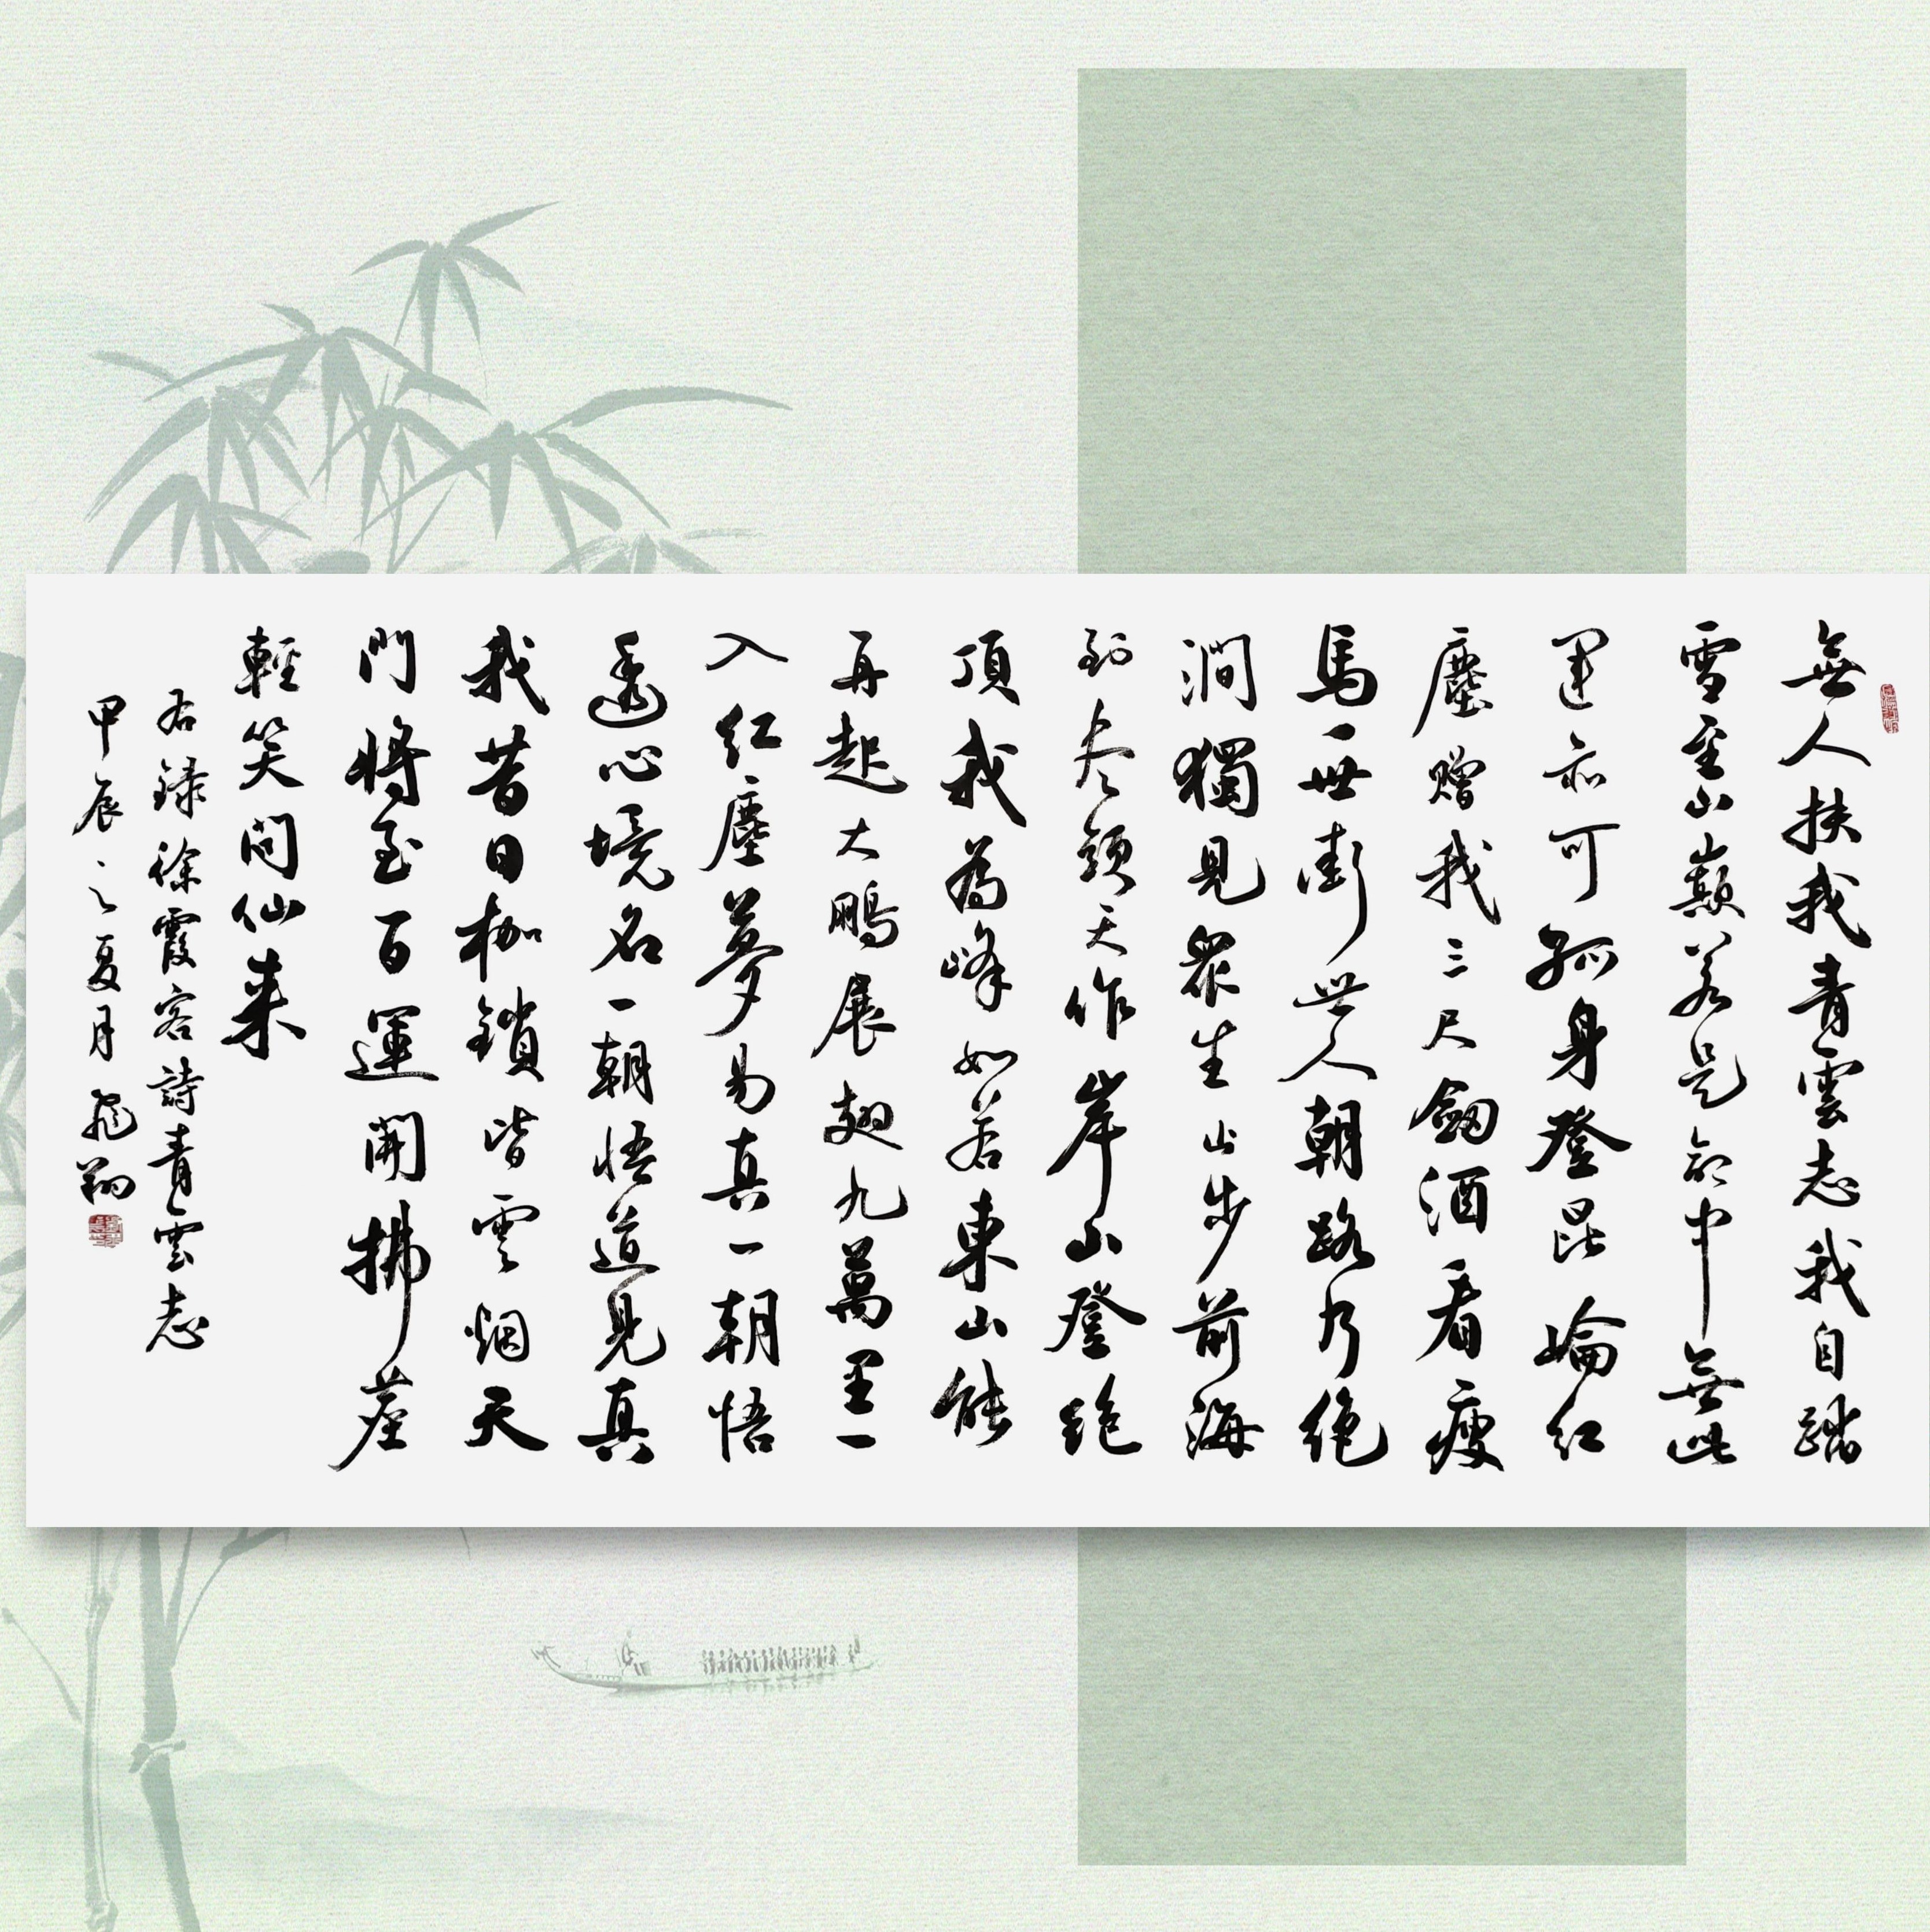 無人扶我青雲志我自踏
雪至山巔若是命中無此
運亦可孤身登昆崙红
塵赠我三尺劔酒看瘦
馬一世衝世人朝路乃绝
澗獨見眾生止步前海
到尽頭天作岸山登绝
頂我為峰如若東山能
再起大鵬展翅九萬里一
入红塵夢易真一朝悟
透心境名一朝悟道見真
我昔日枷鎖皆雲烟天
門將至百運開拂塵
輕笑问仙来
右録徐霞客詩青雲志
甲辰之夏月飛翔